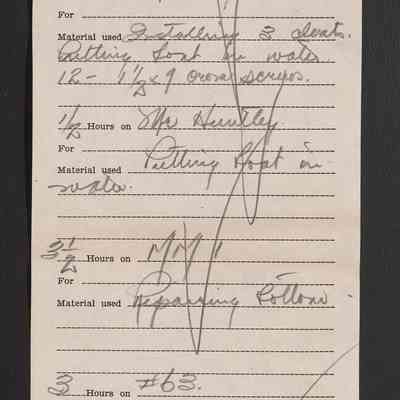 For
Material used Installing 3 cleats.
Putting boat in water
12 - 1 1/2 x 9 screws.
1/2 Hours on Mr Huntley
For
Material used Putting boat in
water.
3 1/2 Hours on MM 1
For
Material used Repairing bottom
3 Hours on #63.